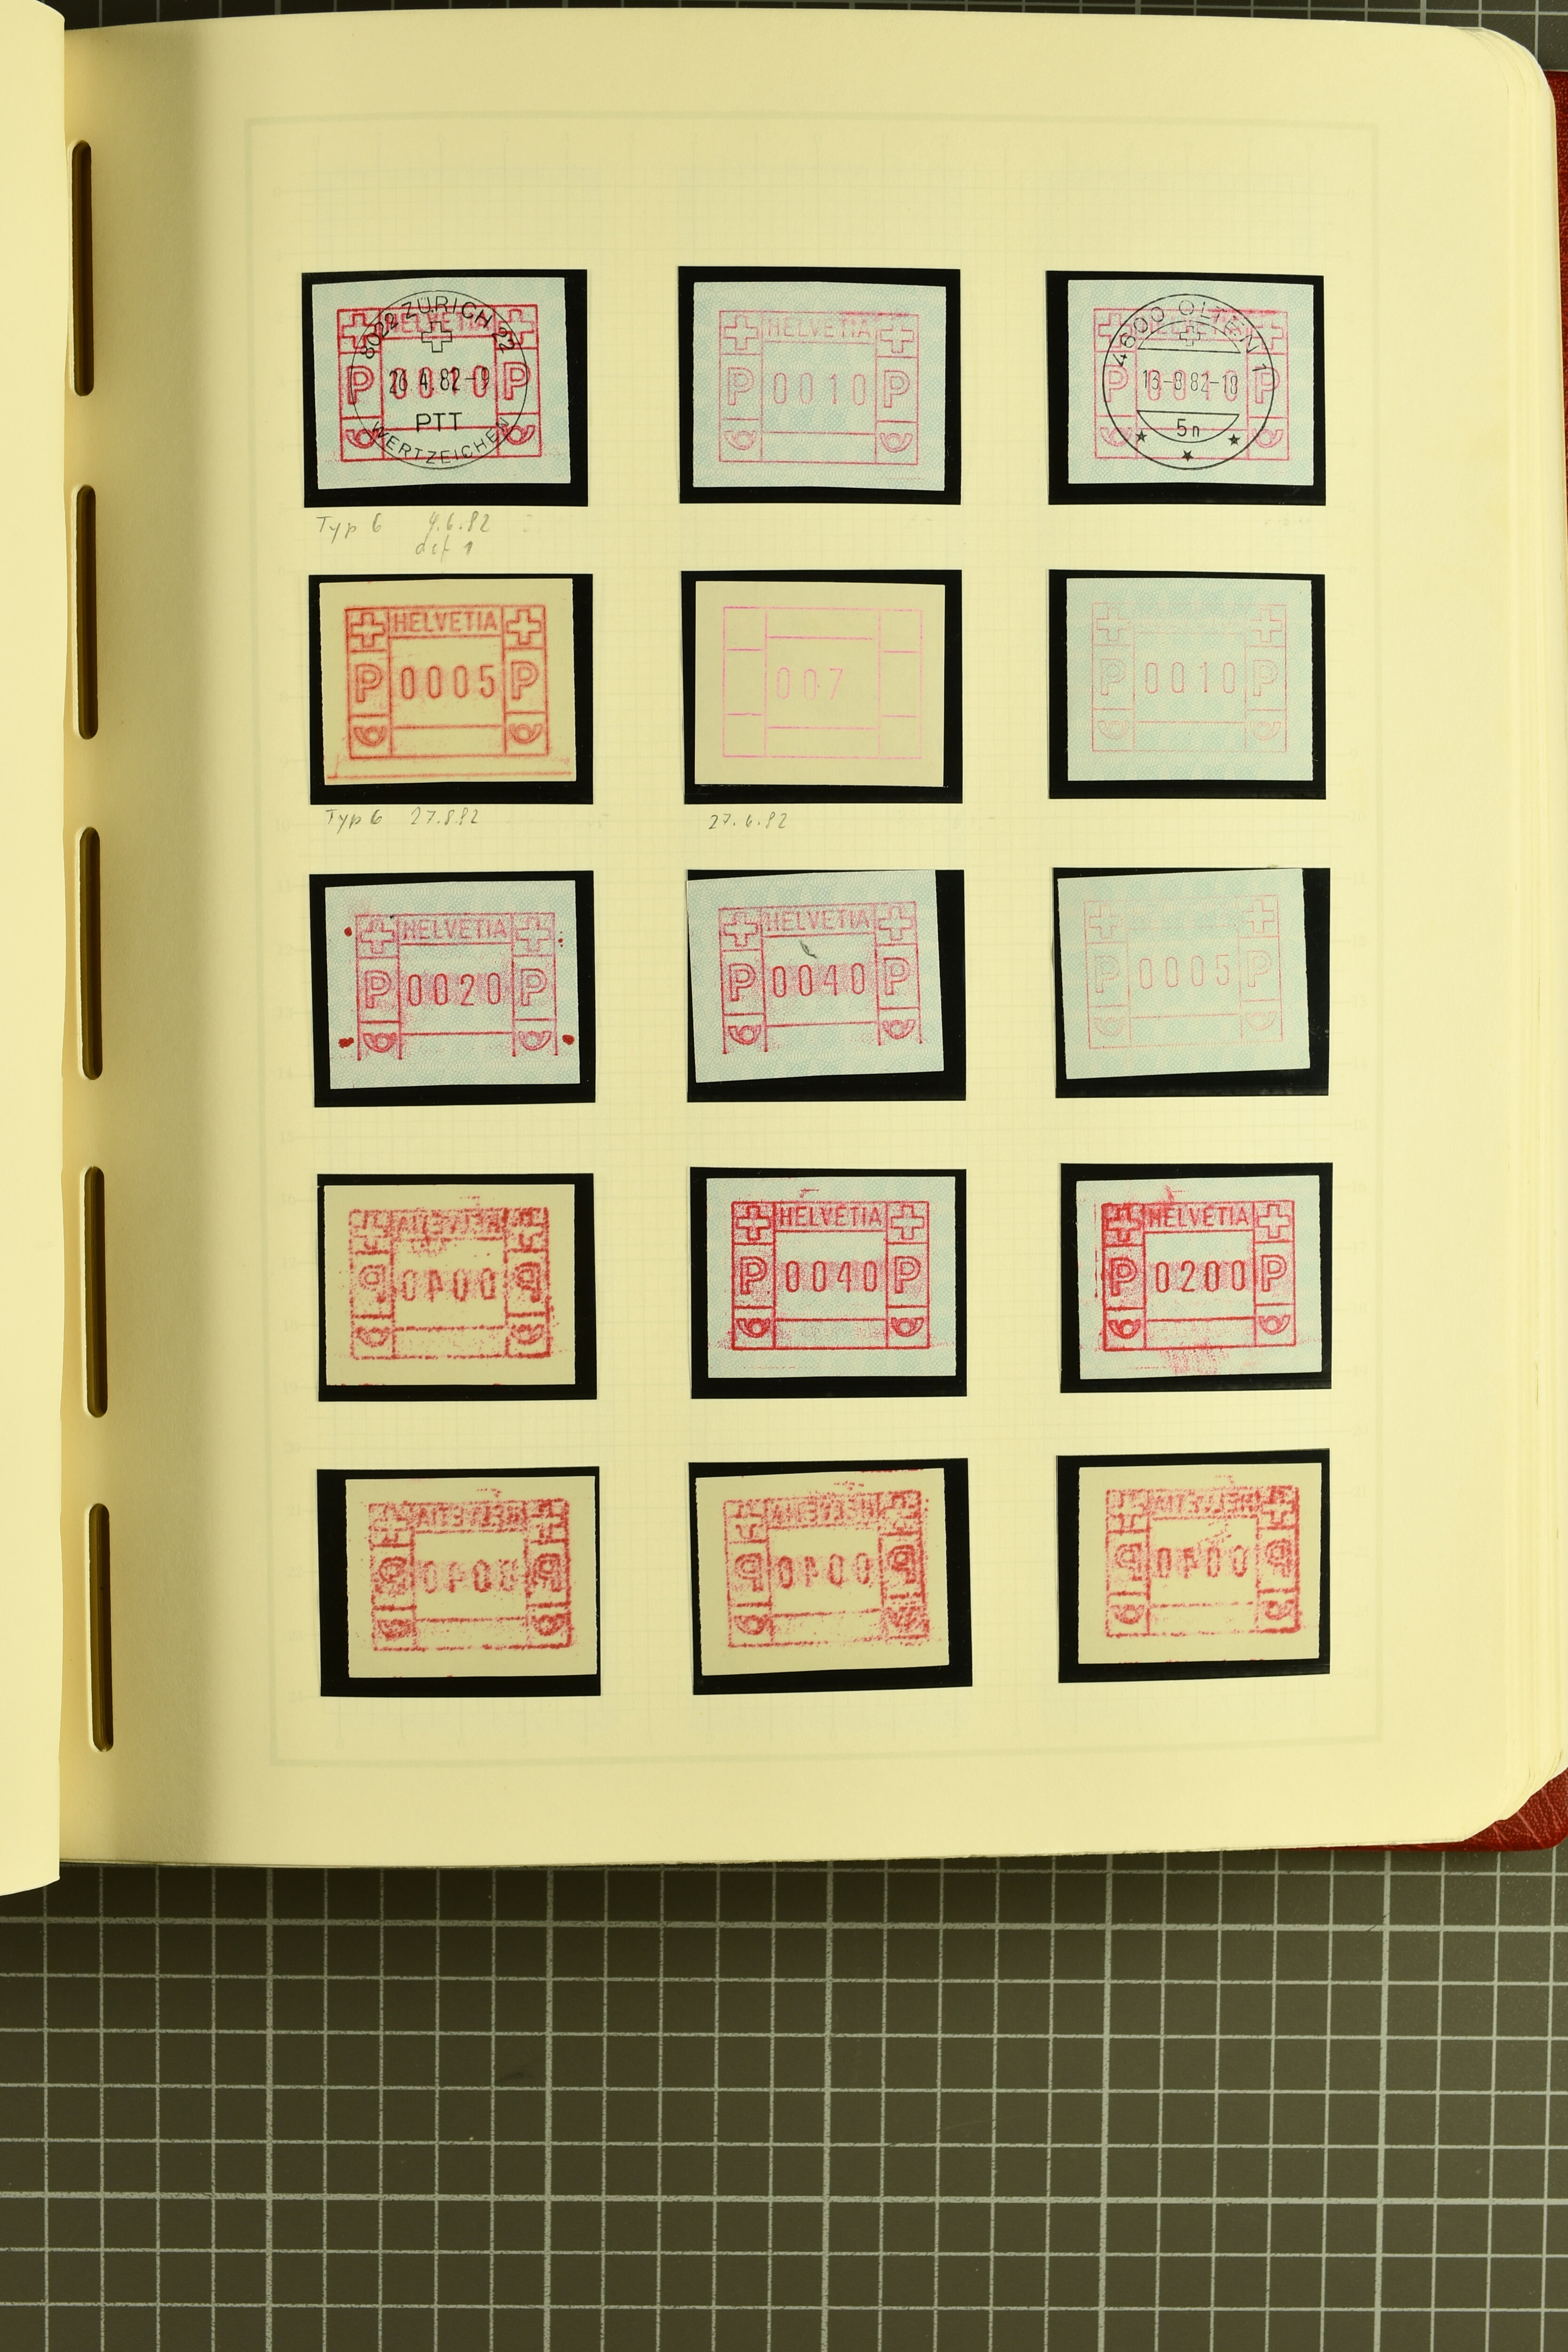 8022 ZÜRICH 22
HELVETIA
P 0010 P
26.4.82-9
PTT
WERTZEICHEN
HELVETIA
P 0010 P
4600 OLTEN 1
P 0010 P
13-9 82-10
5n
Typ 6 4.6.82
def 1
HELVETIA
P 0005 P
007
P 0010 P
Typ 6 27.8.82
27.6.82
HELVETIA
P 0020 P
HELVETIA
P 0040 P
P 0005 P
HELVETIA
P 0040 P
HELVETIA
P 0200 P